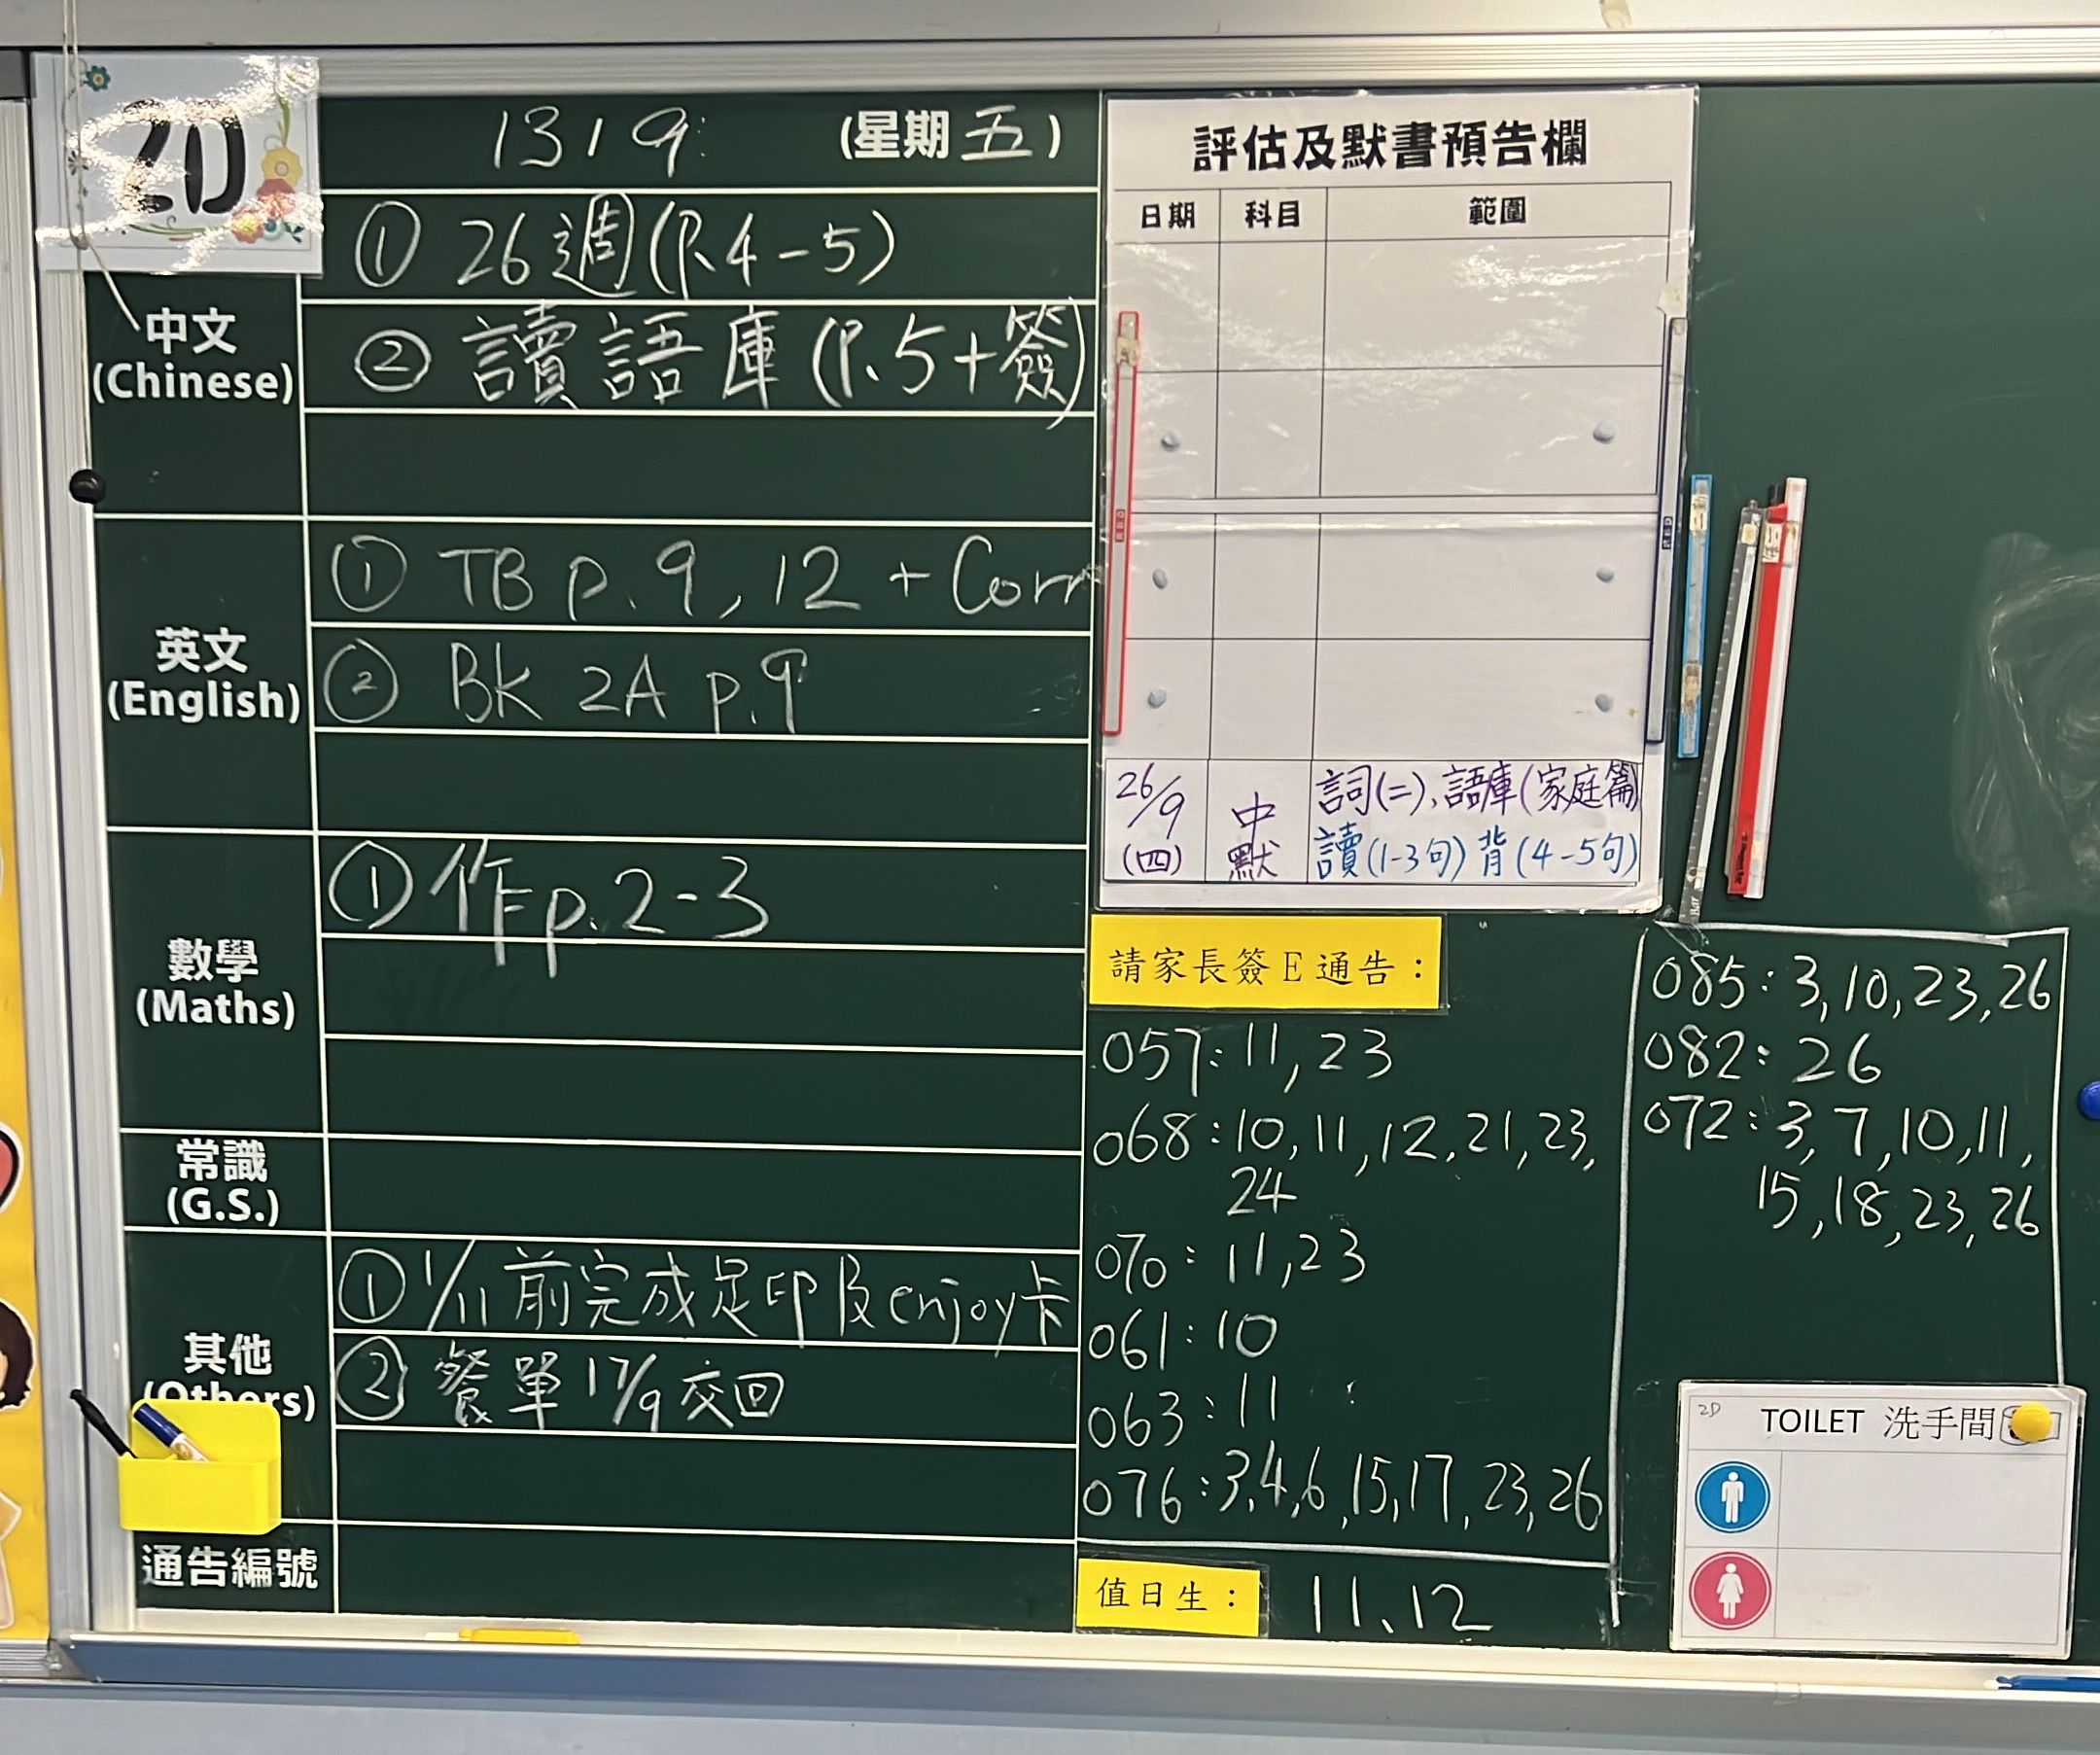 2D
13/9 (星期五)
中文
(Chinese)
① 26週(P.4-5)
② 讀語庫(P.5+簽)
英文
(English)
① TB p.9, 12 + Corr
② BK 2A p.9
數學
(Maths)
① 作p.2-3
常識
(G.S.)
其他
(Others)
① 1/11前完成足印及enjoy卡
② 餐單17/9交回
通告編號
評估及默書預告欄
日期 科目 範圍
26/9
(四)
中
默
詞(二)、語庫(家庭篇)
讀(1-3句) 背(4-5句)
請家長簽E通告：
057: 11, 23
068: 10, 11, 12, 21, 23,
24
070: 11, 23
061: 10
063: 11
076: 3, 4, 6, 15, 17, 23, 26
085: 3, 10, 23, 26
082: 26
072: 3, 7, 10, 11,
15, 18, 23, 26
值日生： 11、12
2D
TOILET 洗手間